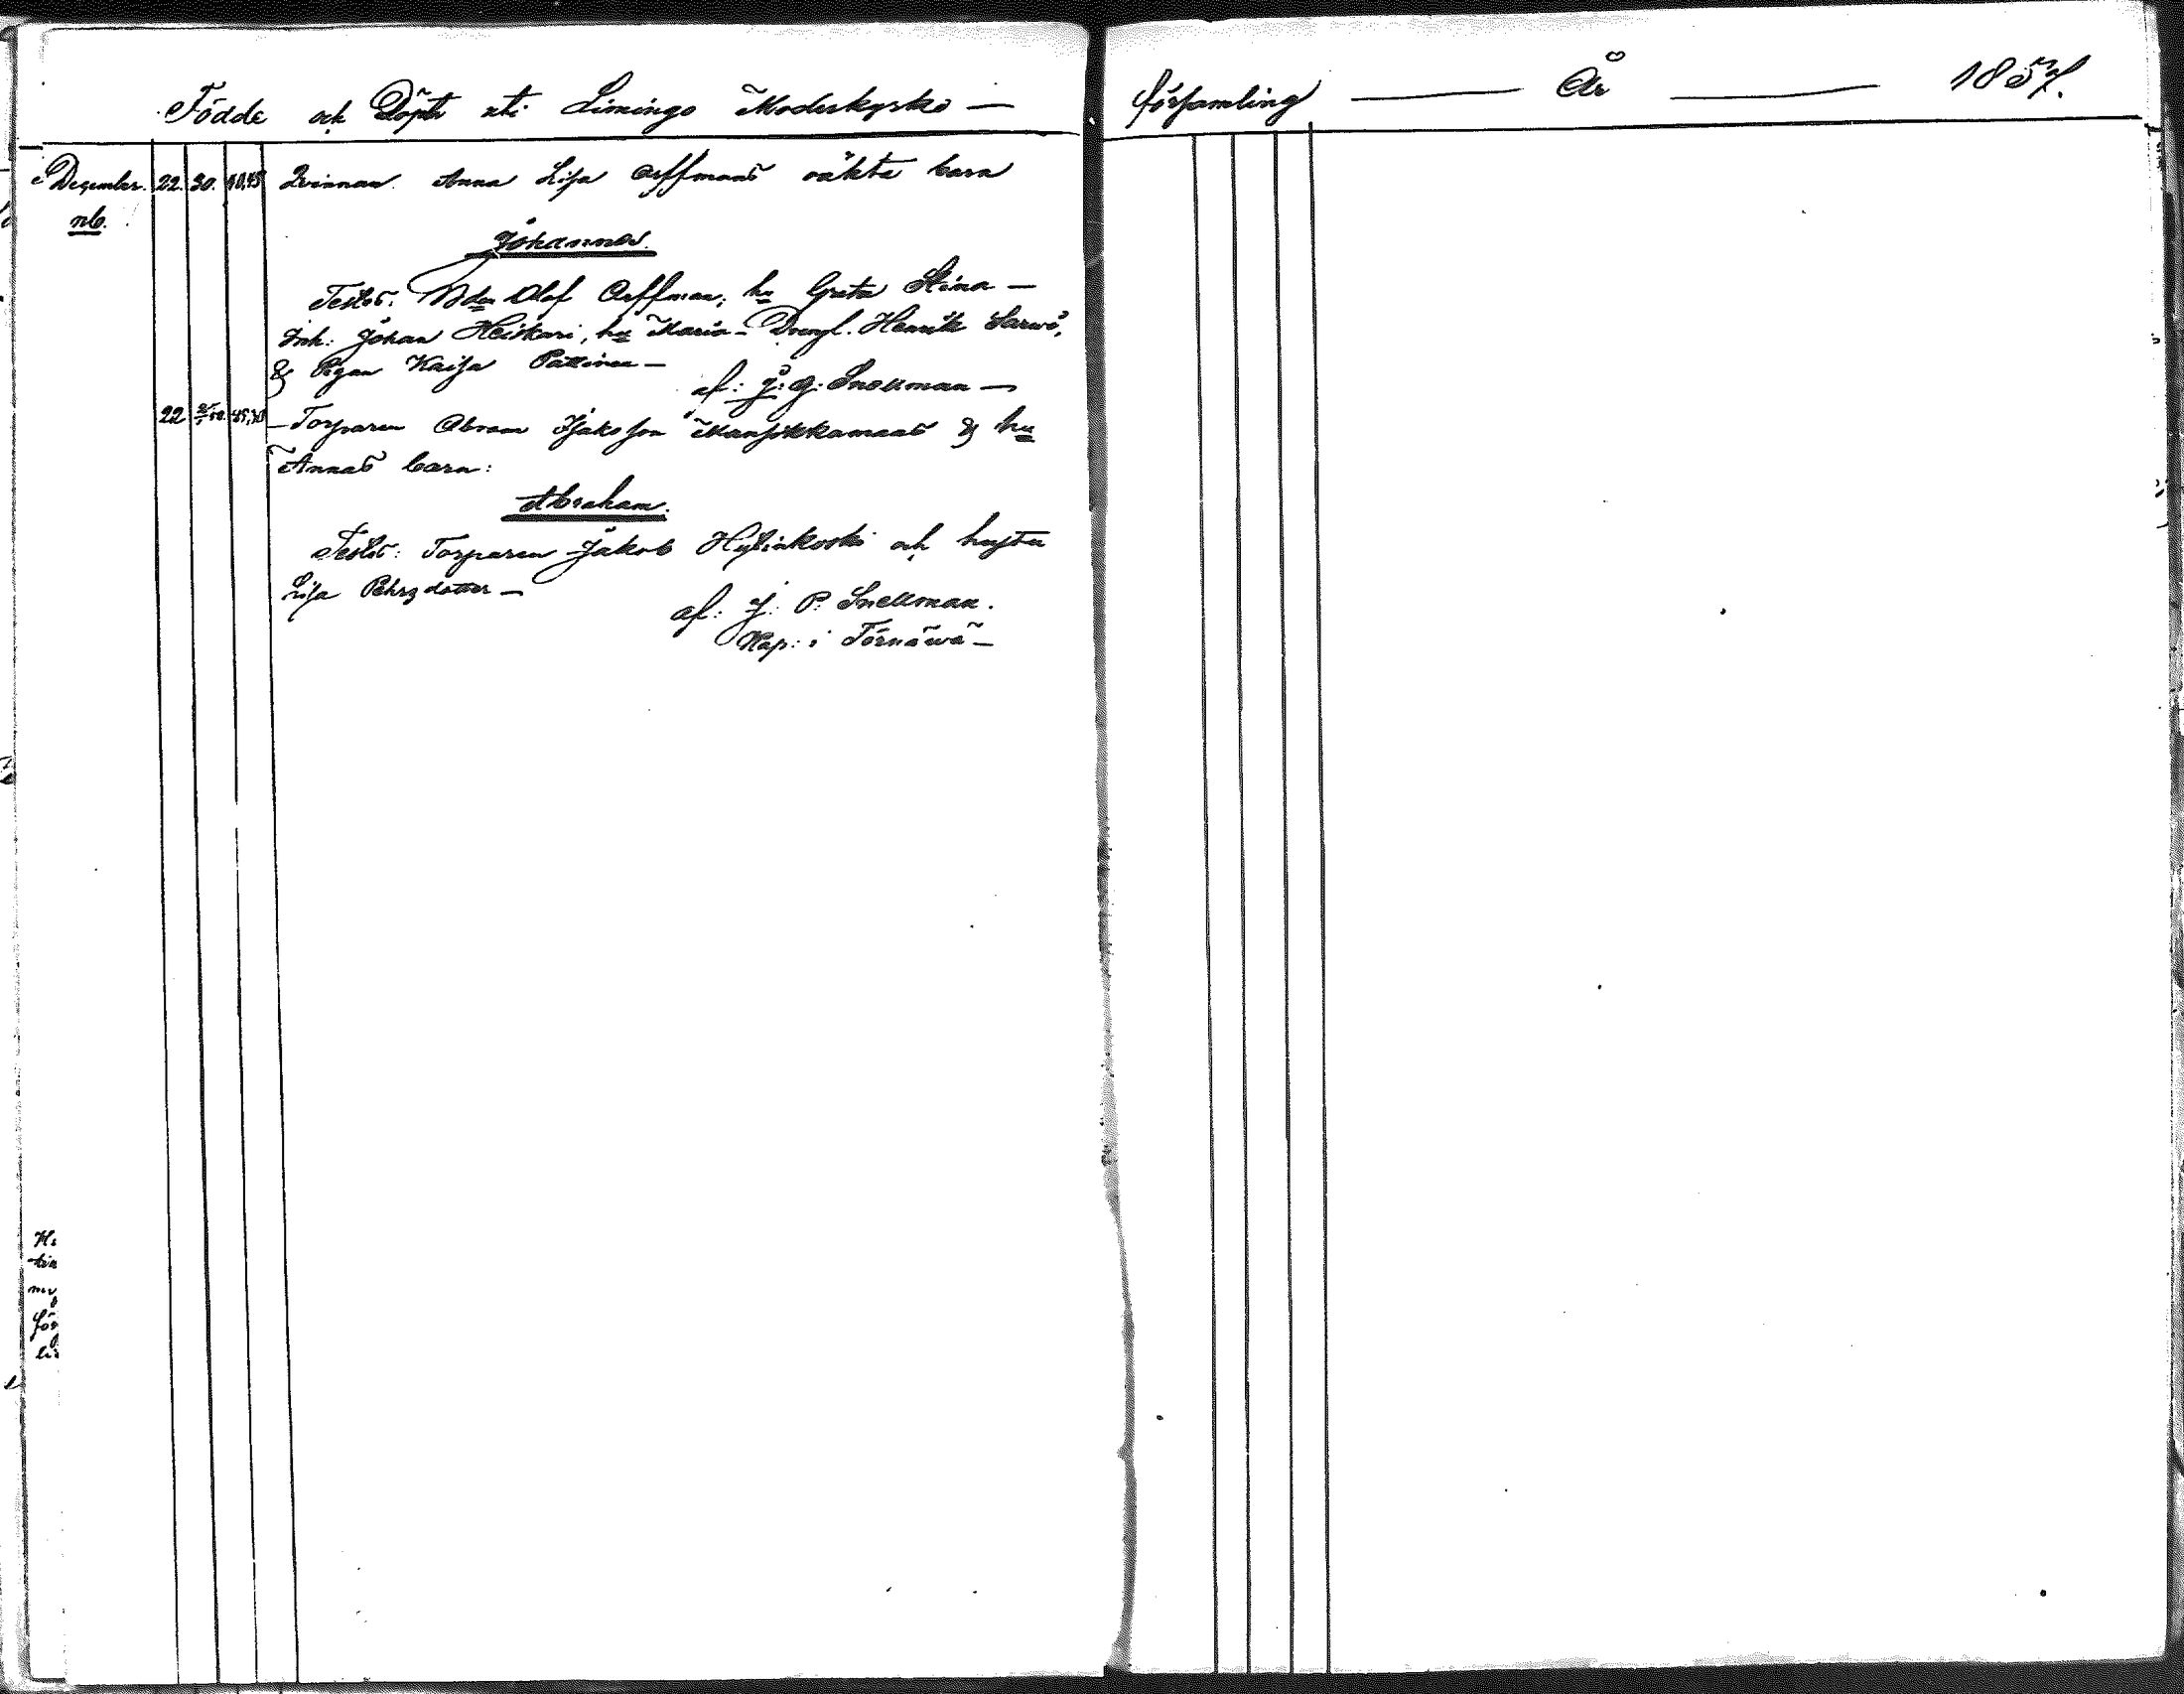 Födde och Döpte uti Limingo Moderkyrko —
församling — År — 1857.
December. 22. 30. 40,45 Qvinnan Anna Lisa Arffmans oäkta barn
nb.
Johannes.
Testes: Olof Arffman, hu Greta Stina —
Inh: Johan Heiskari, hu Maria — Drengl. Henrik Sarwi,
& Pigan Kaisa Pättinen —
af: J. G. Snellman —
22 — Torparen Abram Isaksson Mansikkamaas & hu
Annas barn:
Abraham.
Testes: Torparen Jakob Hyrinkoski och hustru
Lisa Pehrsdotter —
af: J. P. Snellman.
Kap: i Törnäwä —